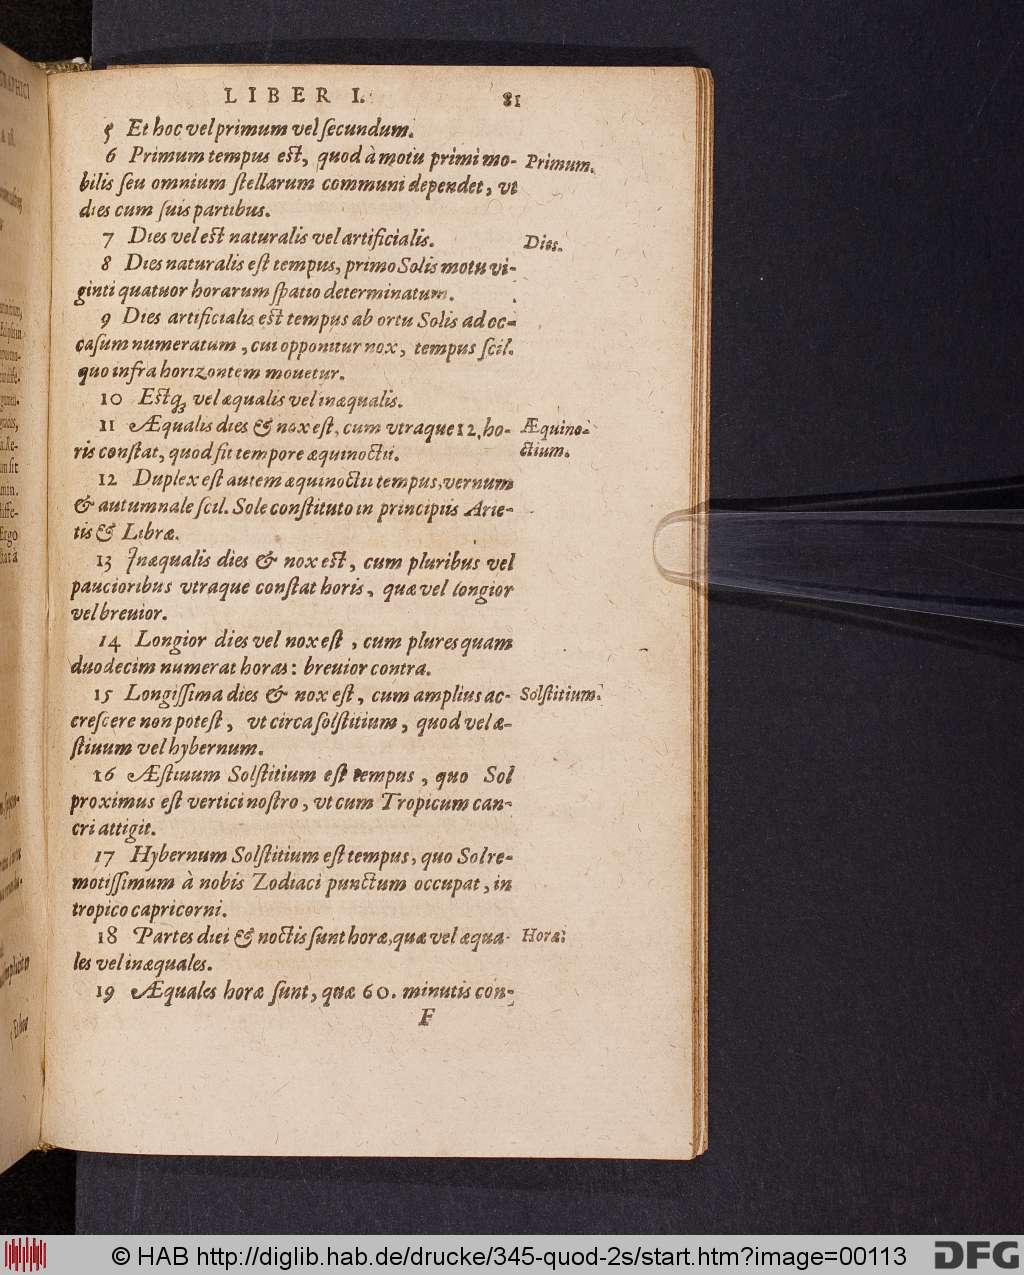 LIBER I. 81
5 Et hoc vel primum vel ſecundum.
6 Primum tempus est, quod à motu primi mo-
bilis ſeu omnium ſtellarum communi dependet, vt
dies cum ſuis partibus.
Primum.
7 Dies vel est naturalis vel artificialis.
Dies.
8 Dies naturalis eſt tempus, primo Solis motu vi-
ginti quatuor horarum ſpatio determinatum.
9 Dies artificialis est tempus ab ortu Solis ad oc-
caſum numeratum, cui opponitur nox, tempus ſcil.
quo infra horizontem mouetur.
10 Estq́ vel æqualis vel inæqualis.
11 Æqualis dies & nox eſt, cum vtraque 12. ho-
ris conſtat, quod fit tempore æquinoctii.
Æquino-
ctium.
12 Duplex eſt autem æquinoctii tempus, vernum
& autumnale ſcil. Sole conſtituto in principiis Arie-
tis & Libræ.
13 Inæqualis dies & nox est, cum pluribus vel
paucioribus vtraque conſtat horis, quæ vel longior
vel breuior.
14 Longior dies vel nox eſt, cum plures quam
duodecim numerat horas: breuior contra.
15 Longiſſima dies & nox eſt, cum amplius ac-
creſcere non poteſt, vt circa ſolſtitium, quod vel æ-
ſtiuum vel hybernum.
Solſtitium.
16 Æſtiuum Solſtitium eſt tempus, quo Sol
proximus eſt vertici noſtro, vt cum Tropicum can-
cri attigit.
17 Hybernum Solſtitium eſt tempus, quo Sol re-
motiſſimum à nobis Zodiaci punctum occupat, in
tropico capricorni.
18 Partes diei & noctis ſunt horæ, quæ vel æqua-
les vel inæquales.
Horæ:
19 Æquales horæ ſunt, quæ 60. minutis con-
F
© HAB http://diglib.hab.de/drucke/345-quod-2s/start.htm?image=00113
DFG